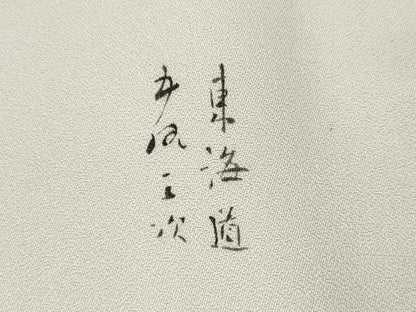 東海道
五拾三次